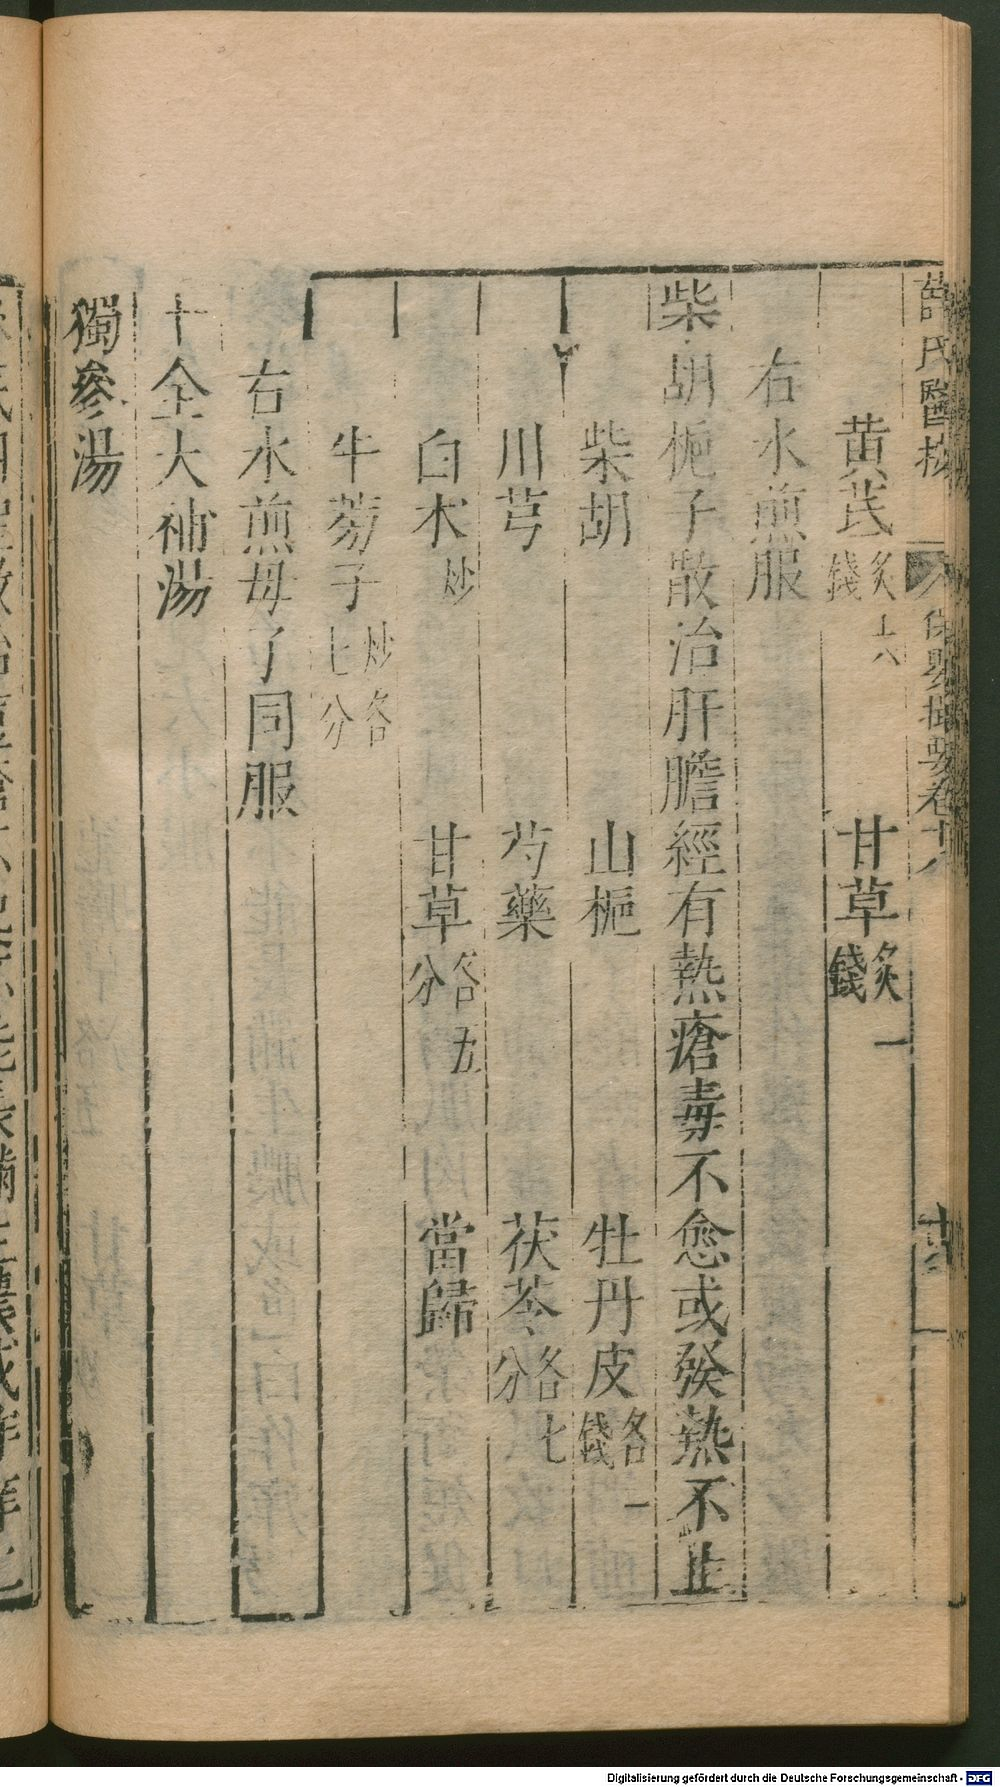 薛氏醫按 保嬰撮要卷十八
黄芪炙六錢 甘草炙一錢
右水煎服
柴胡梔子散治肝膽經有熱瘡毒不愈或發熱不止
柴胡 山梔 牡丹皮各一錢
川芎 芍藥 茯苓各七分
白术炒 甘草各五分 當歸
牛蒡子炒各七分
右水煎母子同服
十全大補湯
獨參湯
Digitalisierung gefördert durch die Deutsche Forschungsgemeinschaft - DFG